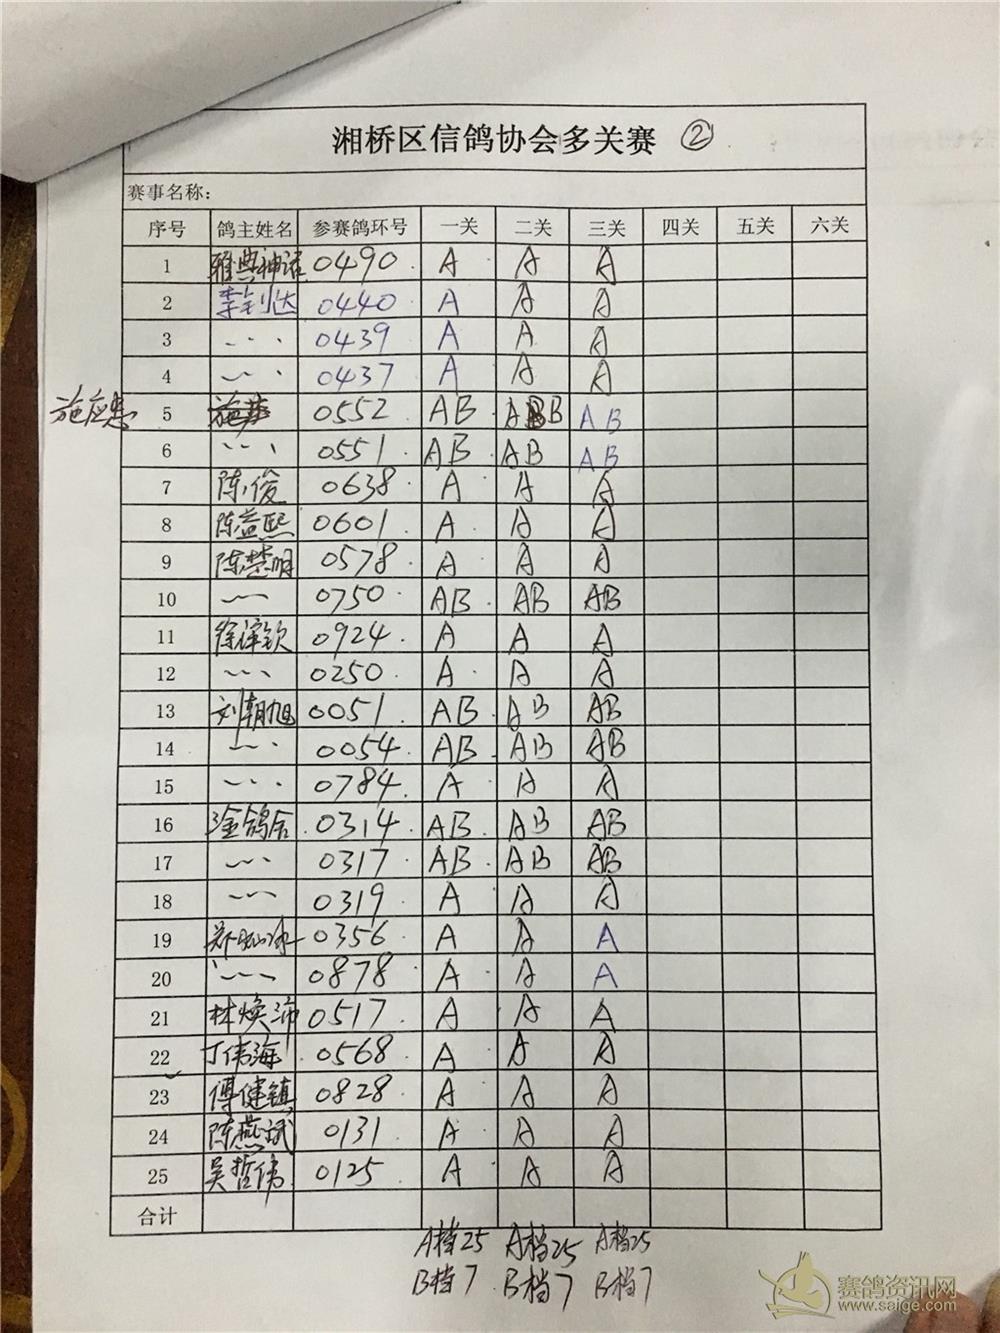 湘桥区信鸽协会多关赛 ②
赛事名称:
序号 鸽主姓名 参赛鸽环号 一关 二关 三关 四关 五关 六关
1 雅典神话 0490 A A A
2 李钊达 0440 A A A
3 〃 0439 A A A
4 〃 0437 A A A
施应忠 5 0552 AB AB AB
6 〃 0551 AB AB AB
7 陈俊 0638 A A A
8 陈益熙 0601 A A A
9 陈楚明 0578 A A A
10 〃 0750 AB AB AB
11 徐泽钦 0924 A A A
12 〃 0250 A A A
13 刘朝旭 0051 AB AB AB
14 〃 0054 AB AB AB
15 〃 0784 A A A
16 淦鸽舍 0314 AB AB AB
17 〃 0317 AB AB AB
18 〃 0319 A A A
19 0356 A A A
20 〃 0878 A A A
21 林焕沛 0517 A A A
22 丁伟海 0568 A A A
23 傅健镇 0828 A A A
24 陈燕斌 0131 A A A
25 吴哲伟 0125 A A A
合计
A档25 A档25 A档25
B档7 B档7 B档7
赛鸽资讯网
www.saige.com